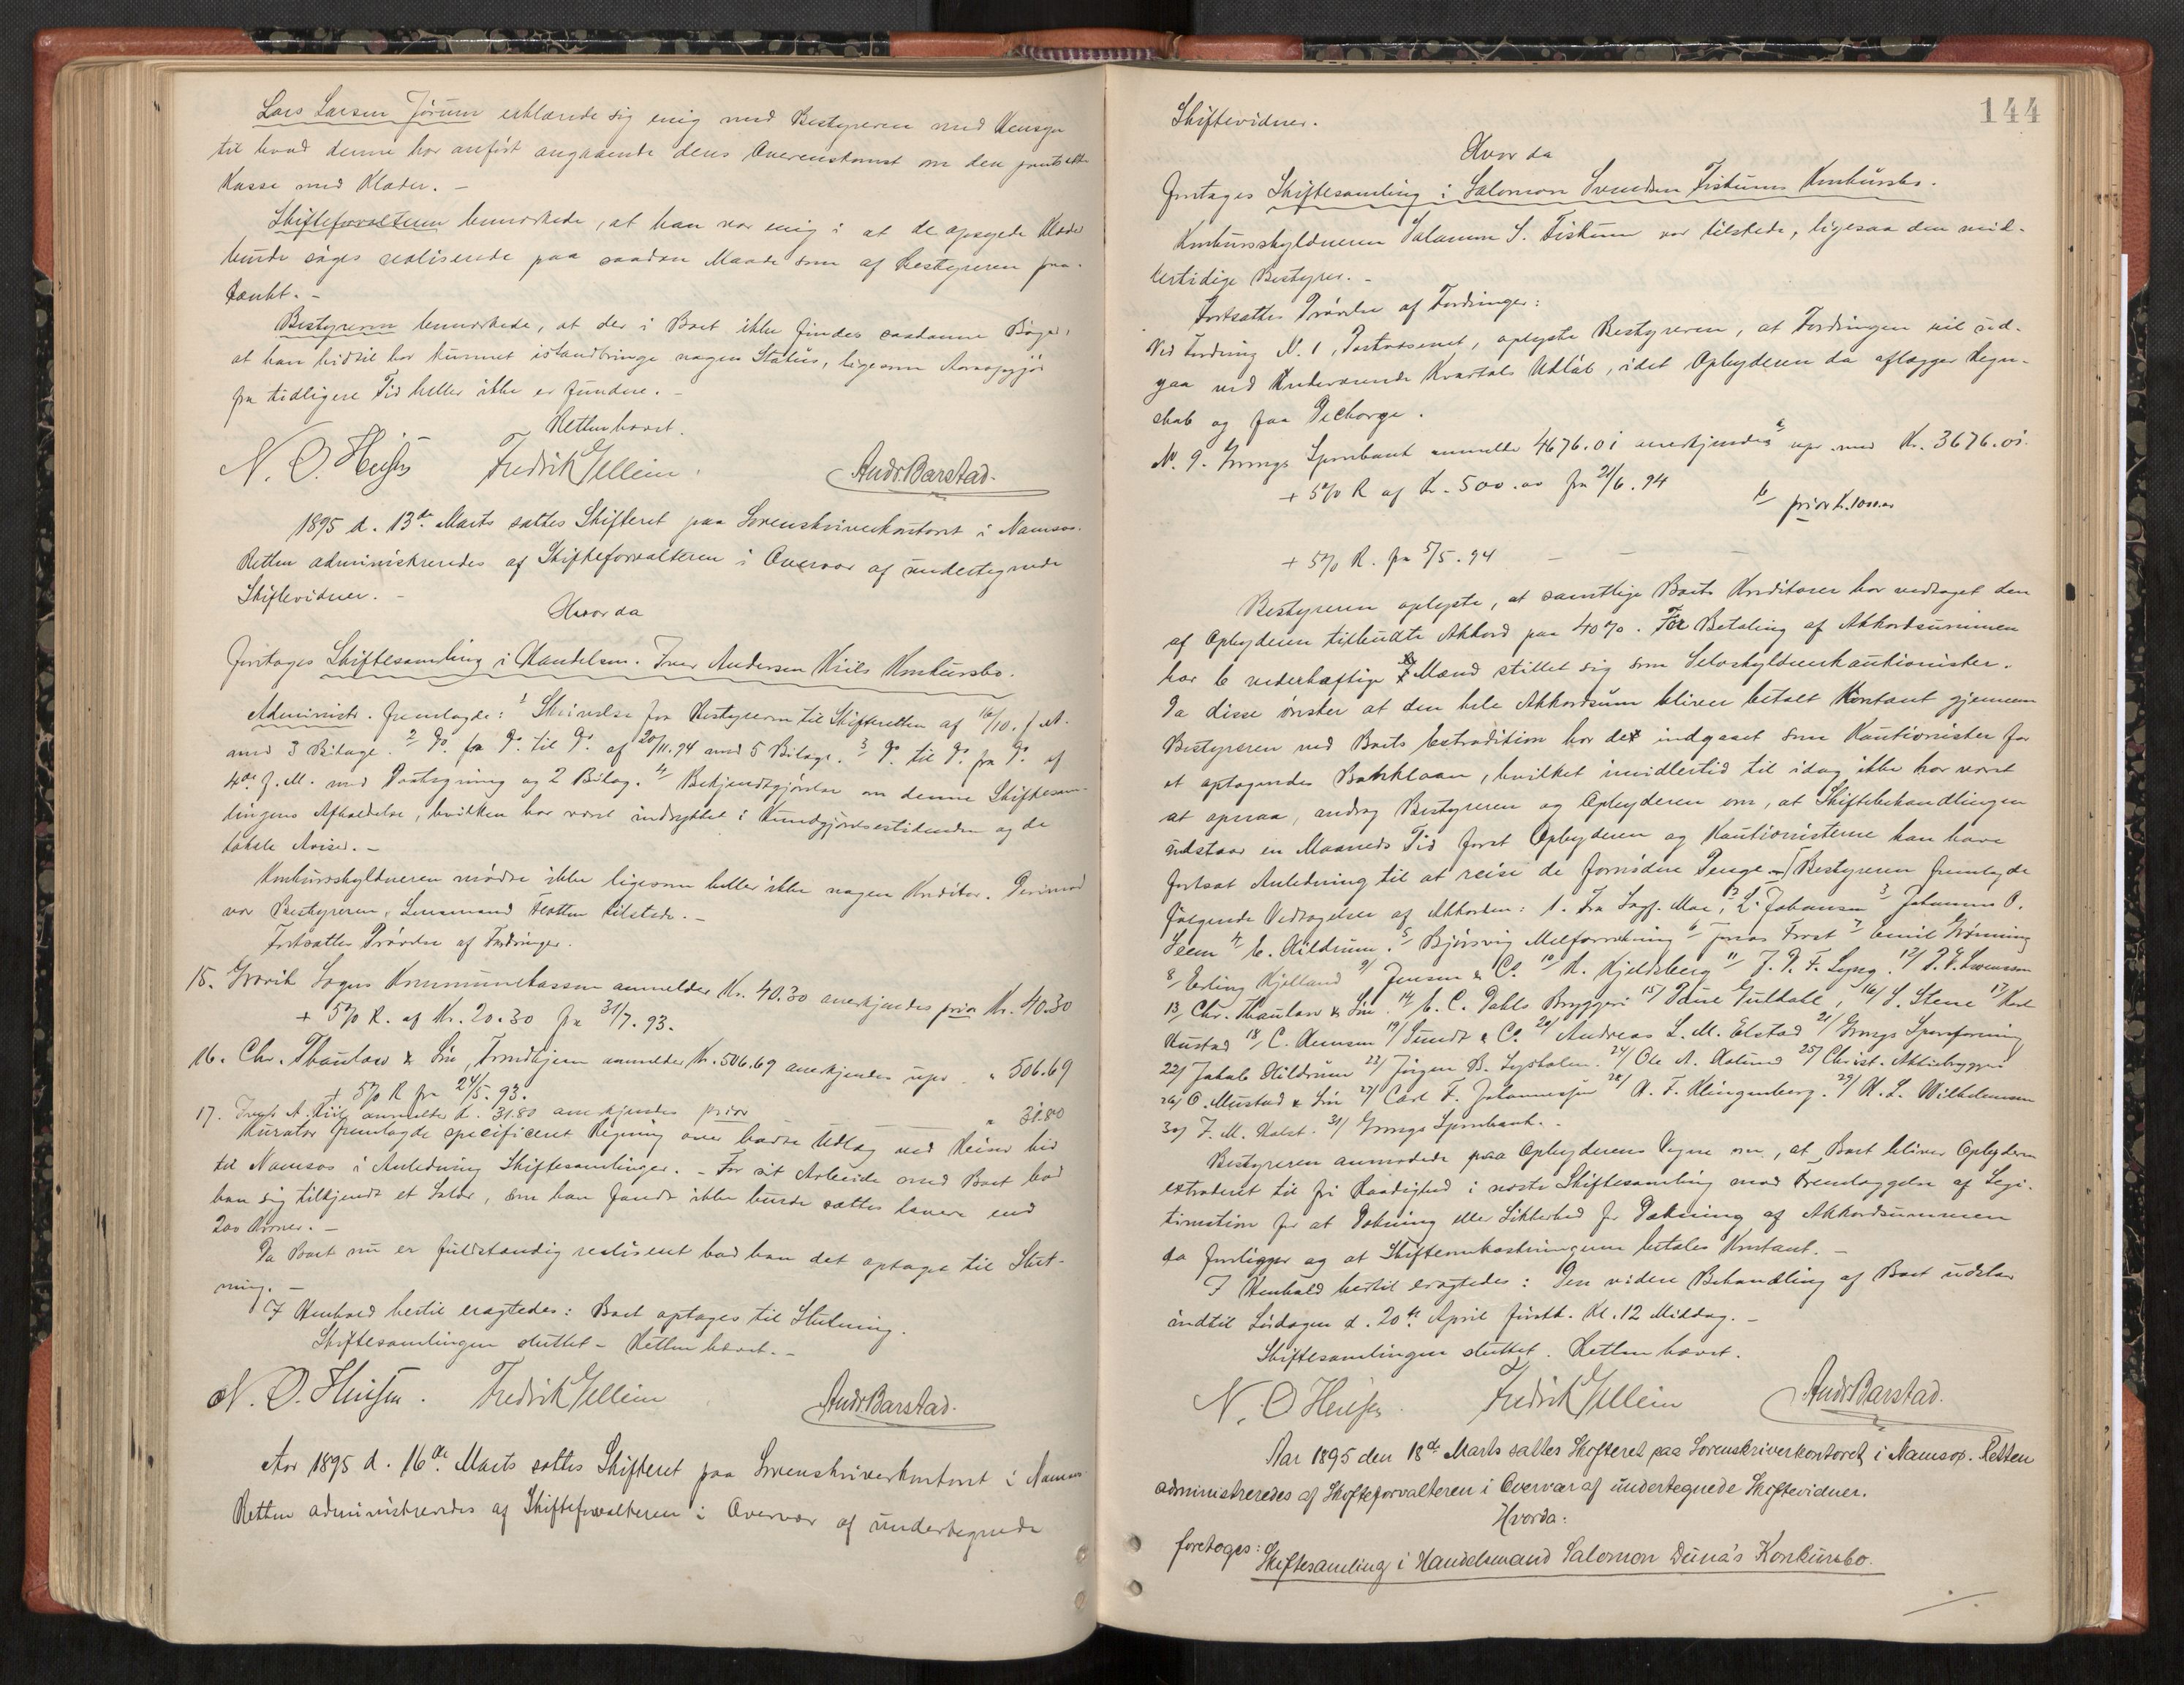 Lars Larsen Jørum erklærede sig enig med Bestyreren med Hensyn
til hvad denne har anført angaaende deres Overenskomst om den
Kasse med Klæder. –
Skifteforvalteren bemærkede, at han var enig i at de opsagde Klæder
burde søges realiserede paa saadan Maade som af Bestyreren paa-
tænkt. –
Bestyreren bemærkede, at der i Boet ikke findes saadanne Bøger,
at han hidtil har kunnet istandbringe nogen Status, ligesom
fra tidligere Tid heller ikke er fundne. –
Retten hævet.
Fredrik Gellein. Andr. Barstad.
1895 d. 13de Marts sattes Skifteret paa Sorenskriverkontoret i Namsos.
Retten administreredes af Skifteforvalteren i Overvær af undertegnede
Skiftevidner. –
Hvorda
foretages Skiftesamling i Handelsm. Iver Andersen Hiils Konkursbo.
Administr. fremlagde: 1 Skrivelse fra Bestyreren til Skifteretten af 16/10. f. A.
med 3 Bilage. 2 Do. fra Do. til Do. af 20/11.94 med 5 Bilage. 3 Do. til Do. fra Do. af
4de f. M. med Paategning og 2 Bilag. 4/ Bekjendtgjørelse om denne Skiftesam-
lingens Afholdelse, hvilken har været indrykket i Kundgjørelsestidenden og de
lokale Aviser. –
Konkursskyldneren mødte ikke ligesom heller ikke nogen Kreditor. Derimod
var Bestyreren, Lensmand tilstede. –
Fortsattes Prøvelse af Fordringer.
15. Sogns Kommunekasse anmelder Kr. 40.30 anerkjendes prior Kr. 40.30
+ 5% R. af Kr. 20.30 fra 31/7. 93.
16. Chr. Thaulow & Søn, Trondhjem anmelder Kr. 506.69 anerkjendes upr. " 506.69
+ 5% R fra 24/5. 93.
17. A. Hiil anmelder Kr. 31.80 anerkjendes prior " 31.80
Kurator fremlagde specificeret Regning over havte Udlæg ved Reiser hid
til Namsos i Anledning Skiftesamlinger. – For sit Arbeide med Boet bad
han sig tilkjendt et Salær, som han fandt ikke burde sættes lavere end
200 Kroner. –
Da Boet nu er fuldstændig realiseret bad han det optaget til Slut-
ning. –
I Henhold hertil eragtedes: Boet optages til Slutning.
Skiftesamlingen sluttet – Retten hævet. –
Fredrik Gellein Andr. Barstad.
Aar 1895 d. 16de Marts sattes Skifteret paa Sorenskriverkontoret i Namsos
Retten administreredes af Skifteforvalteren i Overvær af undertegnede
144
Skiftevidner.
Hvorda
foretages Skiftesamling i Salomon Svendsen Fiskums Konkursbo.
Konkursskyldneren Salamon S. Fiskum var tilstede, ligesaa den mid-
lertidige Bestyrer. –
Fortsattes Prøvelse af Fordringer:
Ved Fordring N. 1, Postvæsenet, oplyste Bestyreren, at Fordringen vil ud-
gaa ved Indeværende Kvartals Udløb, idet Opbyderen da aflægger Regn-
skab og faar Decharge.
N. 9. Grongs Sparebank anmeldte 4676.01 anerkjendes a upr. med Kr. 3676.01
+ 5% R af Kr. 500.00 fra 21/6. 94
b prior K. 1000.00
+ 5% R. fra 5/5. 94 – – –
Bestyreren oplyste, at samtlige Boets Kreditorer har vedtaget den
af Opbyderen tilbudte Akkord paa 40%. For Betaling af Akkordsummen
har 6 vederhæftige Mænd stillet sig som Selvskyldnerkautionister.
Da disse ønsker at den hele Akkordsum bliver betalt Kontant gjennem
Bestyreren ved Boets Extradition har de indgaaet som Kautionister for
et optagendes Banklaan, hvilket imidlertid til idag ikke har været
at opnaa, androg Bestyreren og Opbyderen om, at Skiftebehandlingen
udstaar en Maaneds Tid forat Opbyderen og Kautionisterne kan have
fortsat Anledning til at reise de fornødne Penge – Bestyreren fremlagde
følgende Vedtagelser af Akkorden: 1. Fra Sagf. Moe, 2 L. Johansen 3 Johannes O.
Seem 4 E. Hildrum. 5 Bjørsvig Melforretning 6 Jonas Frost 7 Emil Grønning
8/ Erling Kjelland 9/ Jensen & Co. 10 H. Kjeldsberg 11 J. P. F. Lyseg. 12/
13/ Chr. Thaulow & Søn. 14 E. C. Dahls Bryggeri 15/ Guldahl, 16/ S. Stene 17 Karl
Hustad 18/ C. Hansen 19/ Sundt & Co. 20/ Andreas L. M. Elstad 21/ Grongs Spareforening
22/ Jakob Hildrum 23/ Jørgen B. Lysholm. 24/ Ole A. 25/ Christ. Aktiebryggeri
26/ O. Mustad & Søn 27/ Carl F. Johannesen 28/ H. F. Klingenberg. 29/ H. L. Wilhelmsen
30/ J. M. Holst. 31/ Grongs Sparebank. –
Bestyreren anmodede paa Opbyderens Vegne om, at Boet bliver Opbyderen
extraderet til fri Raadighed i næste Skiftesamling mod Fremlæggelse af Legi-
timation for at Dækning eller Sikkerhed for Dækning af Akkordsummen
da foreligger og at Skifteomkostningerne betales Kontant. –
I Henhold hertil eragtedes: Den videre Behandling af Boet udstaar
indtil Lørdagen d. 20de April førstk. Kl. 12 Middag. –
Skiftesamlingen sluttet. Retten hævet.
Fredrik Gellein Andr. Barstad.
Aar 1895 den 18de Marts sattes Skifteret paa Sorenskriverkontoret i Namsos. Retten
administreredes af Skifteforvalteren i Overvær af undertegnede Skiftevidner.
Hvorda:
foretoges: Skiftesamling i Handelsmand Salomon Duna's Konkursbo.